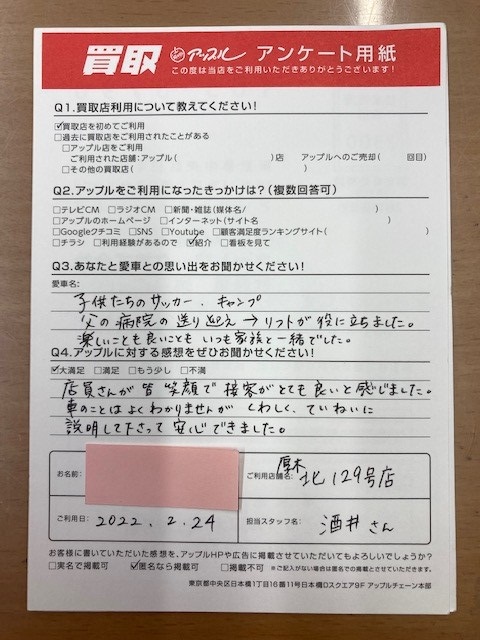 買取 アップル アンケート用紙
この度は当店をご利用いただきありがとうございます!
Q1.買取店利用について教えてください!
☑買取店を初めてご利用
□過去に買取店をご利用されたことがある
□アップル店をご利用
ご利用された店舗:アップル( )店 アップルへのご売却( 回目)
□その他の買取店( )
Q2.アップルをご利用になったきっかけは?(複数回答可)
□テレビCM □ラジオCM □新聞・雑誌(媒体名/ )
□アップルのホームページ □インターネット(サイト名 )
□Googleクチコミ □SNS □Youtube □顧客満足度ランキングサイト( )
□チラシ □利用経験があるので ☑紹介 □看板を見て
Q3.あなたと愛車との思い出をお聞かせください!
愛車名:
子供たちのサッカー、キャンプ
父の病院の送り迎え→リフトが役に立ちました。
楽しいことも良いことも いつも家族と一緒でした。
Q4.アップルに対する感想をぜひお聞かせください!
☑大満足 □満足 □もう少し □不満
店員さんが皆 笑顔で 接客がとても良いと感じました。
車のことはよくわかりませんが くわしく、ていねいに
説明して下さって 安心できました。
お名前:
ご利用店舗名: 厚木北129号店
ご利用日: 2022. 2. 24
担当スタッフ名: 酒井さん
お客様に書いていただいた感想を、アップルHPや広告に掲載させていただいてもよろしいでしょうか?
□実名で掲載可 ☑匿名なら掲載可 □掲載不可 ※ご記入がない場合は匿名での掲載とさせていただきます。
東京都中央区日本橋1丁目16番11号日本橋Dスクエア9F アップルチェーン本部